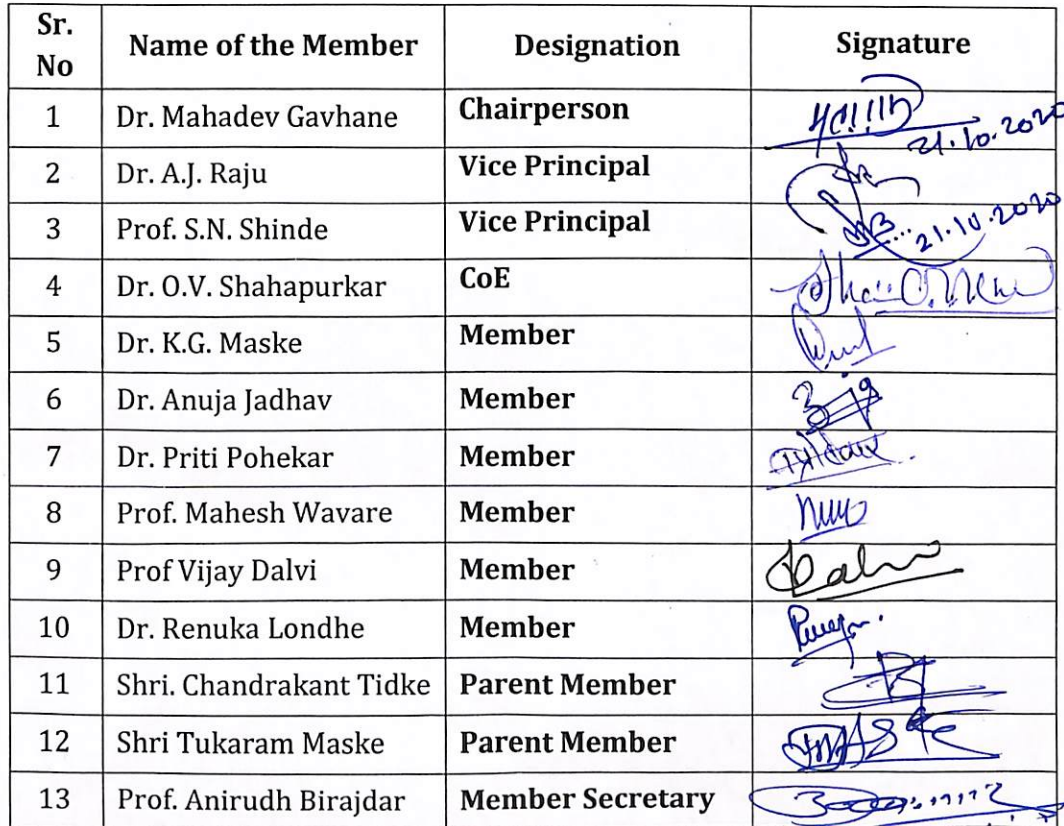 Sr. No Name of the Member Designation Signature
1 Dr. Mahadev Gavhane Chairperson 21.10.2020
2 Dr. A.J. Raju Vice Principal
3 Prof. S.N. Shinde Vice Principal 21.10.2020
4 Dr. O.V. Shahapurkar CoE
5 Dr. K.G. Maske Member
6 Dr. Anuja Jadhav Member
7 Dr. Priti Pohekar Member
8 Prof. Mahesh Wavare Member
9 Prof Vijay Dalvi Member
10 Dr. Renuka Londhe Member
11 Shri. Chandrakant Tidke Parent Member
12 Shri Tukaram Maske Parent Member
13 Prof. Anirudh Birajdar Member Secretary